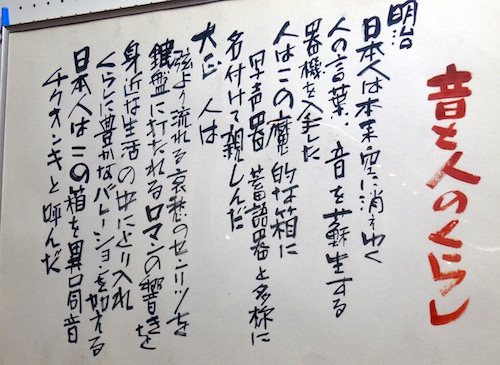 音と人のくらし
明治
日本人は本来空に消えゆく
人の言葉、音を蘇生する
器機を入手した
人はこの魔的な箱に
写声器 蓄語器と名称に
名付けて親しんだ
大正 人は
弦より流れる哀愁のセンリツを
鍵盤に打たれるロマンの響きを
身近な生活の中にとり入れ
くらしに豊かなバレーションを加える
日本人はこの箱を異口同音
チクオンキと呼んだ